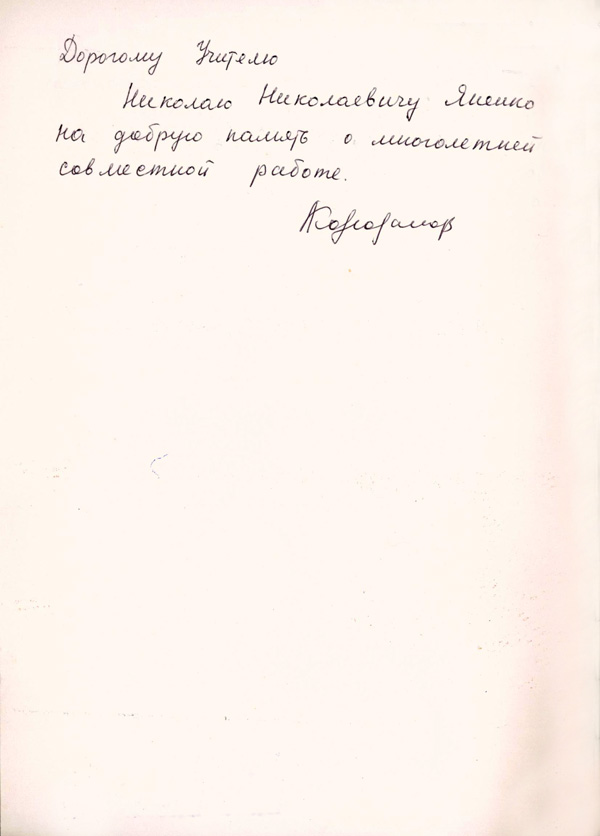 Дорогому Учителю
Николаю Николаевичу Яненко
на добрую память о многолетней
совместной работе.